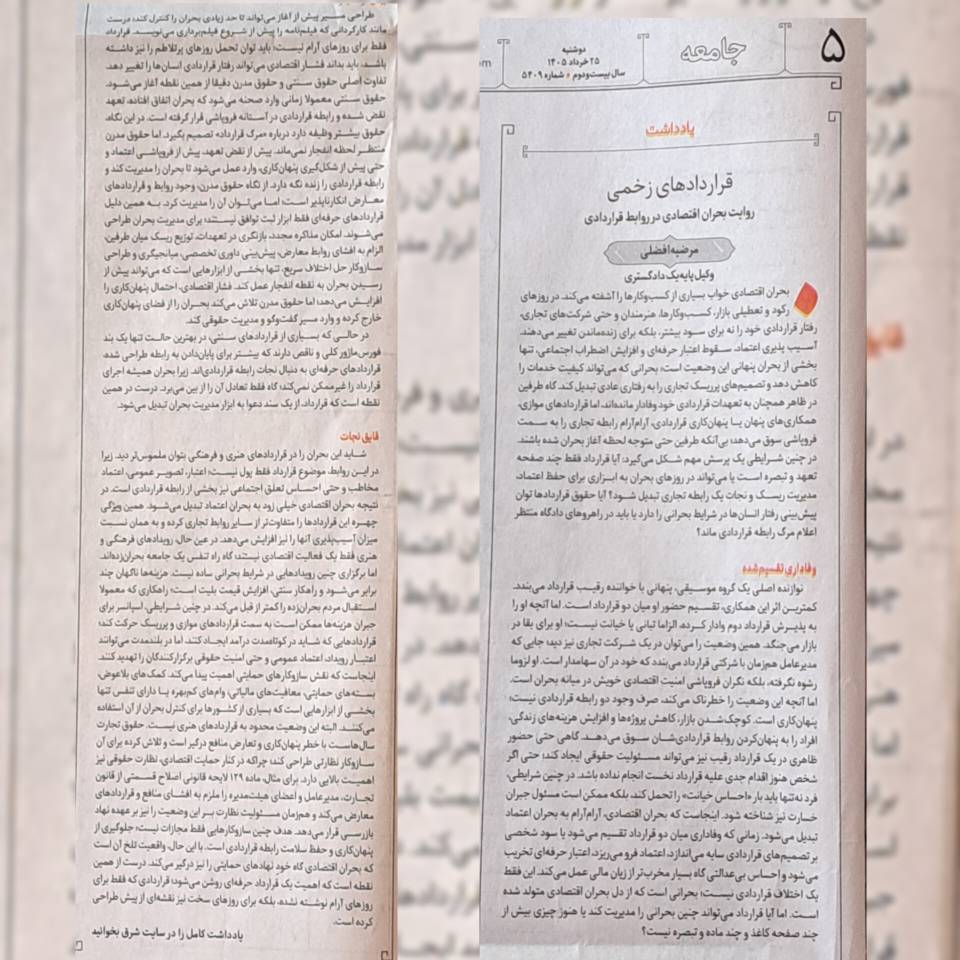 ۵
جامعه
دوشنبه
۲۵ خرداد ۱۴۰۵
سال بیست‌ودوم • شماره ۵۴۰۹
om
یادداشت
قراردادهای زخمی
روایت بحران اقتصادی در روابط قراردادی
مرضیه افضلی
وکیل پایه یک دادگستری
بحران اقتصادی خواب بسیاری از کسب‌وکارها را آشفته می‌کند. در روزهای
رکود و تعطیلی بازار، کسب‌وکارها، هنرمندان و حتی شرکت‌های تجاری،
رفتار قراردادی خود را نه برای سود بیشتر، بلکه برای زنده‌ماندن تغییر می‌دهند.
آسیب پذیری اعتماد، سقوط اعتبار حرفه‌ای و افزایش اضطراب اجتماعی، تنها
بخشی از بحران پنهانی این وضعیت است؛ بحرانی که می‌تواند کیفیت خدمات را
کاهش دهد و تصمیم‌های پرریسک تجاری را به رفتاری عادی تبدیل کند. گاه طرفین
در ظاهر همچنان به تعهدات قراردادی خود وفادار مانده‌اند، اما قراردادهای موازی،
همکاری‌های پنهان یا پنهان‌کاری قراردادی، آرام‌آرام رابطه تجاری را به سمت
فروپاشی سوق می‌دهد؛ بی‌آنکه طرفین حتی متوجه لحظه آغاز بحران شده باشند.
در چنین شرایطی یک پرسش مهم شکل می‌گیرد: آیا قرارداد فقط چند صفحه
تعهد و تبصره است یا می‌تواند در روزهای بحران به ابزاری برای حفظ اعتماد،
مدیریت ریسک و نجات یک رابطه تجاری تبدیل شود؟ آیا حقوق قراردادها توان
پیش‌بینی رفتار انسان‌ها در شرایط بحرانی را دارد یا باید در راهروهای دادگاه منتظر
اعلام مرگ رابطه قراردادی ماند؟
وفاداری تقسیم‌شده
نوازنده اصلی یک گروه موسیقی، پنهانی با خواننده رقیب قرارداد می‌بندد.
کمترین اثر این همکاری، تقسیم حضور او میان دو قرارداد است. اما آنچه او را
به پذیرش قرارداد دوم وادار کرده، الزاما تبانی یا خیانت نیست؛ او برای بقا در
بازار می‌جنگد. همین وضعیت را می‌توان در یک شرکت تجاری نیز دید؛ جایی که
مدیرعامل هم‌زمان با شرکتی قرارداد می‌بندد که خود در آن سهامدار است. او لزوما
رشوه نگرفته، بلکه نگران فروپاشی امنیت اقتصادی خویش در میانه بحران است.
اما آنچه این وضعیت را خطرناک می‌کند، صرف وجود دو رابطه قراردادی نیست؛
پنهان‌کاری است. کوچک‌شدن بازار، کاهش پروژه‌ها و افزایش هزینه‌های زندگی،
افراد را به پنهان‌کردن روابط قراردادی‌شان سوق می‌دهد. گاهی حتی حضور
ظاهری در یک قرارداد رقیب نیز می‌تواند مسئولیت حقوقی ایجاد کند؛ حتی اگر
شخص هنوز اقدام جدی علیه قرارداد نخست انجام نداده باشد. در چنین شرایطی،
فرد نه‌تنها باید بار «احساس خیانت» را تحمل کند، بلکه ممکن است مسئول جبران
خسارت نیز شناخته شود. اینجاست که بحران اقتصادی، آرام‌آرام به بحران اعتماد
تبدیل می‌شود. زمانی که وفاداری میان دو قرارداد تقسیم می‌شود یا سود شخصی
بر تصمیم‌های قراردادی سایه می‌اندازد، اعتماد فرو می‌ریزد، اعتبار حرفه‌ای تخریب
می‌شود و احساس بی‌عدالتی گاه بسیار مخرب‌تر از زیان مالی عمل می‌کند. این فقط
یک اختلاف قراردادی نیست؛ بحرانی است که از دل بحران اقتصادی متولد شده
است. اما آیا قرارداد می‌تواند چنین بحرانی را مدیریت کند یا هنوز چیزی بیش از
چند صفحه کاغذ و چند ماده و تبصره نیست؟
طراحی مسیر پیش از آغاز می‌تواند تا حد زیادی بحران را کنترل کند؛ درست
مانند کارگردانی که فیلم‌نامه را پیش از شروع فیلم‌برداری می‌نویسد. قرارداد
فقط برای روزهای آرام نیست؛ باید توان تحمل روزهای پرتلاطم را نیز داشته
باشد. باید بداند فشار اقتصادی می‌تواند رفتار قراردادی انسان‌ها را تغییر دهد.
تفاوت اصلی حقوق سنتی و حقوق مدرن دقیقا از همین نقطه آغاز می‌شود.
حقوق سنتی معمولا زمانی وارد صحنه می‌شود که بحران اتفاق افتاده، تعهد
نقض شده و رابطه قراردادی در آستانه فروپاشی قرار گرفته است. در این نگاه،
حقوق بیشتر وظیفه دارد درباره «مرگ قرارداد» تصمیم بگیرد. اما حقوق مدرن
منتظر لحظه انفجار نمی‌ماند. پیش از نقض تعهد، پیش از فروپاشی اعتماد و
حتی پیش از شکل‌گیری پنهان‌کاری، وارد عمل می‌شود تا بحران را مدیریت کند و
رابطه قراردادی را زنده نگه دارد. از نگاه حقوق مدرن، وجود روابط و قراردادهای
معارض انکارناپذیر است؛ اما می‌توان آن را مدیریت کرد. به همین دلیل
قراردادهای حرفه‌ای فقط ابزار ثبت توافق نیستند؛ برای مدیریت بحران طراحی
می‌شوند. امکان مذاکره مجدد، بازنگری در تعهدات، توزیع ریسک میان طرفین،
الزام به افشای روابط معارض، پیش‌بینی داوری تخصصی، میانجیگری و طراحی
سازوکار حل اختلاف سریع، تنها بخشی از ابزارهایی است که می‌تواند پیش از
رسیدن بحران به نقطه انفجار عمل کند. فشار اقتصادی، احتمال پنهان‌کاری را
افزایش می‌دهد؛ اما حقوق مدرن تلاش می‌کند بحران را از فضای پنهان‌کاری
خارج کرده و وارد مسیر گفت‌وگو و مدیریت حقوقی کند.
در حالی که بسیاری از قراردادهای سنتی، در بهترین حالت تنها یک بند
فورس‌ماژور کلی و ناقص دارند که بیشتر برای پایان‌دادن به رابطه طراحی شده،
قراردادهای حرفه‌ای به دنبال نجات رابطه قراردادی‌اند. زیرا بحران همیشه اجرای
قرارداد را غیرممکن نمی‌کند؛ گاه فقط تعادل آن را از بین می‌برد. درست در همین
نقطه است که قرارداد، از یک سند دعوا به ابزار مدیریت بحران تبدیل می‌شود.
قایق نجات
شاید این بحران را در قراردادهای هنری و فرهنگی بتوان ملموس‌تر دید. زیرا
در این روابط، موضوع قرارداد فقط پول نیست؛ اعتبار، تصویر عمومی، اعتماد
مخاطب و حتی احساس تعلق اجتماعی نیز بخشی از رابطه قراردادی است. در
نتیجه بحران اقتصادی خیلی زود به بحران اعتماد تبدیل می‌شود. همین ویژگی
چهره این قراردادها را متفاوت‌تر از سایر روابط تجاری کرده و به همان نسبت
میزان آسیب‌پذیری آنها را نیز افزایش می‌دهد. در عین حال، رویدادهای فرهنگی و
هنری فقط یک فعالیت اقتصادی نیستند؛ گاه راه تنفس یک جامعه بحران‌زده‌اند.
اما برگزاری چنین رویدادهایی در شرایط بحرانی ساده نیست. هزینه‌ها ناگهان چند
برابر می‌شود و راهکار سنتی، افزایش قیمت بلیت است؛ راهکاری که معمولا
استقبال مردم بحران‌زده را کمتر از قبل می‌کند. در چنین شرایطی، اسپانسر برای
جبران هزینه‌ها ممکن است به سمت قراردادهای موازی و پرریسک حرکت کند؛
قراردادهایی که شاید در کوتاه‌مدت درآمد ایجاد کنند، اما در بلندمدت می‌توانند
اعتبار رویداد، اعتماد عمومی و حتی امنیت حقوقی برگزارکنندگان را تهدید کنند.
اینجاست که نقش سازوکارهای حمایتی اهمیت پیدا می‌کند. کمک‌های بلاعوض،
بسته‌های حمایتی، معافیت‌های مالیاتی، وام‌های کم‌بهره یا دارای تنفس تنها
بخشی از ابزارهایی است که بسیاری از کشورها برای کنترل بحران از آن استفاده
می‌کنند. البته این وضعیت محدود به قراردادهای هنری نیست. حقوق تجارت
سال‌هاست با خطر پنهان‌کاری و تعارض منافع درگیر است و تلاش کرده برای آن
سازوکار نظارتی طراحی کند؛ چراکه در کنار حمایت اقتصادی، نظارت حقوقی نیز
اهمیت بالایی دارد. برای مثال، ماده ۱۲۹ لایحه قانونی اصلاح قسمتی از قانون
تجارت، مدیرعامل و اعضای هیئت‌مدیره را ملزم به افشای منافع و قراردادهای
معارض می‌کند و هم‌زمان مسئولیت نظارت بر این وضعیت را نیز بر عهده نهاد
بازرسی قرار می‌دهد. هدف چنین سازوکارهایی فقط مجازات نیست؛ جلوگیری از
پنهان‌کاری و حفظ سلامت رابطه قراردادی است. با این حال، واقعیت تلخ آن است
که بحران اقتصادی گاه خود نهادهای حمایتی را نیز درگیر می‌کند. درست از همین
نقطه است که اهمیت یک قرارداد حرفه‌ای روشن می‌شود؛ قراردادی که فقط برای
روزهای آرام نوشته نشده، بلکه برای روزهای سخت نیز نقشه‌ای از پیش طراحی
کرده است.
یادداشت کامل را در سایت شرق بخوانید